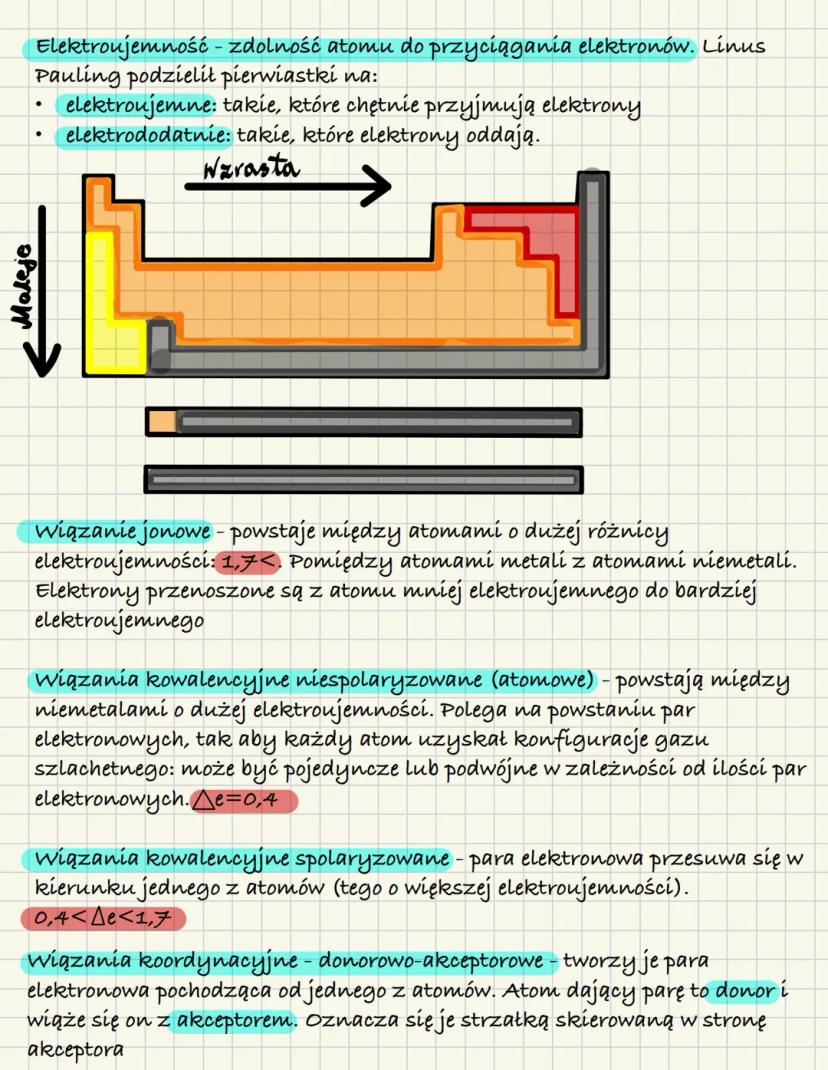 Elektroujemność - zdolność atomu do przyciągania elektronów. Linus
Pauling podzielił pierwiastki na:
• elektroujemne: takie, które chętnie przyjmują elektrony
• elektrododatnie: takie, które elektrony oddają.
Wzrasta
Maleje
Wiązanie jonowe - powstaje między atomami o dużej różnicy
elektroujemności: 1,7<. Pomiędzy atomami metali z atomami niemetali.
Elektrony przenoszone są z atomu mniej elektroujemnego do bardziej
elektroujemnego
Wiązania kowalencyjne niespolaryzowane (atomowe) - powstają między
niemetalami o dużej elektroujemności. Polega na powstaniu par
elektronowych, tak aby każdy atom uzyskał konfiguracje gazu
szlachetnego: może być pojedyncze lub podwójne w zależności od ilości par
elektronowych. △e=0,4
Wiązania kowalencyjne spolaryzowane - para elektronowa przesuwa się w
kierunku jednego z atomów (tego o większej elektroujemności).
0,4<△e<1,7
Wiązania koordynacyjne - donorowo-akceptorowe - tworzy je para
elektronowa pochodząca od jednego z atomów. Atom dający parę to donor i
wiąże się on z akceptorem. Oznacza się je strzałką skierowaną w stronę
akceptora